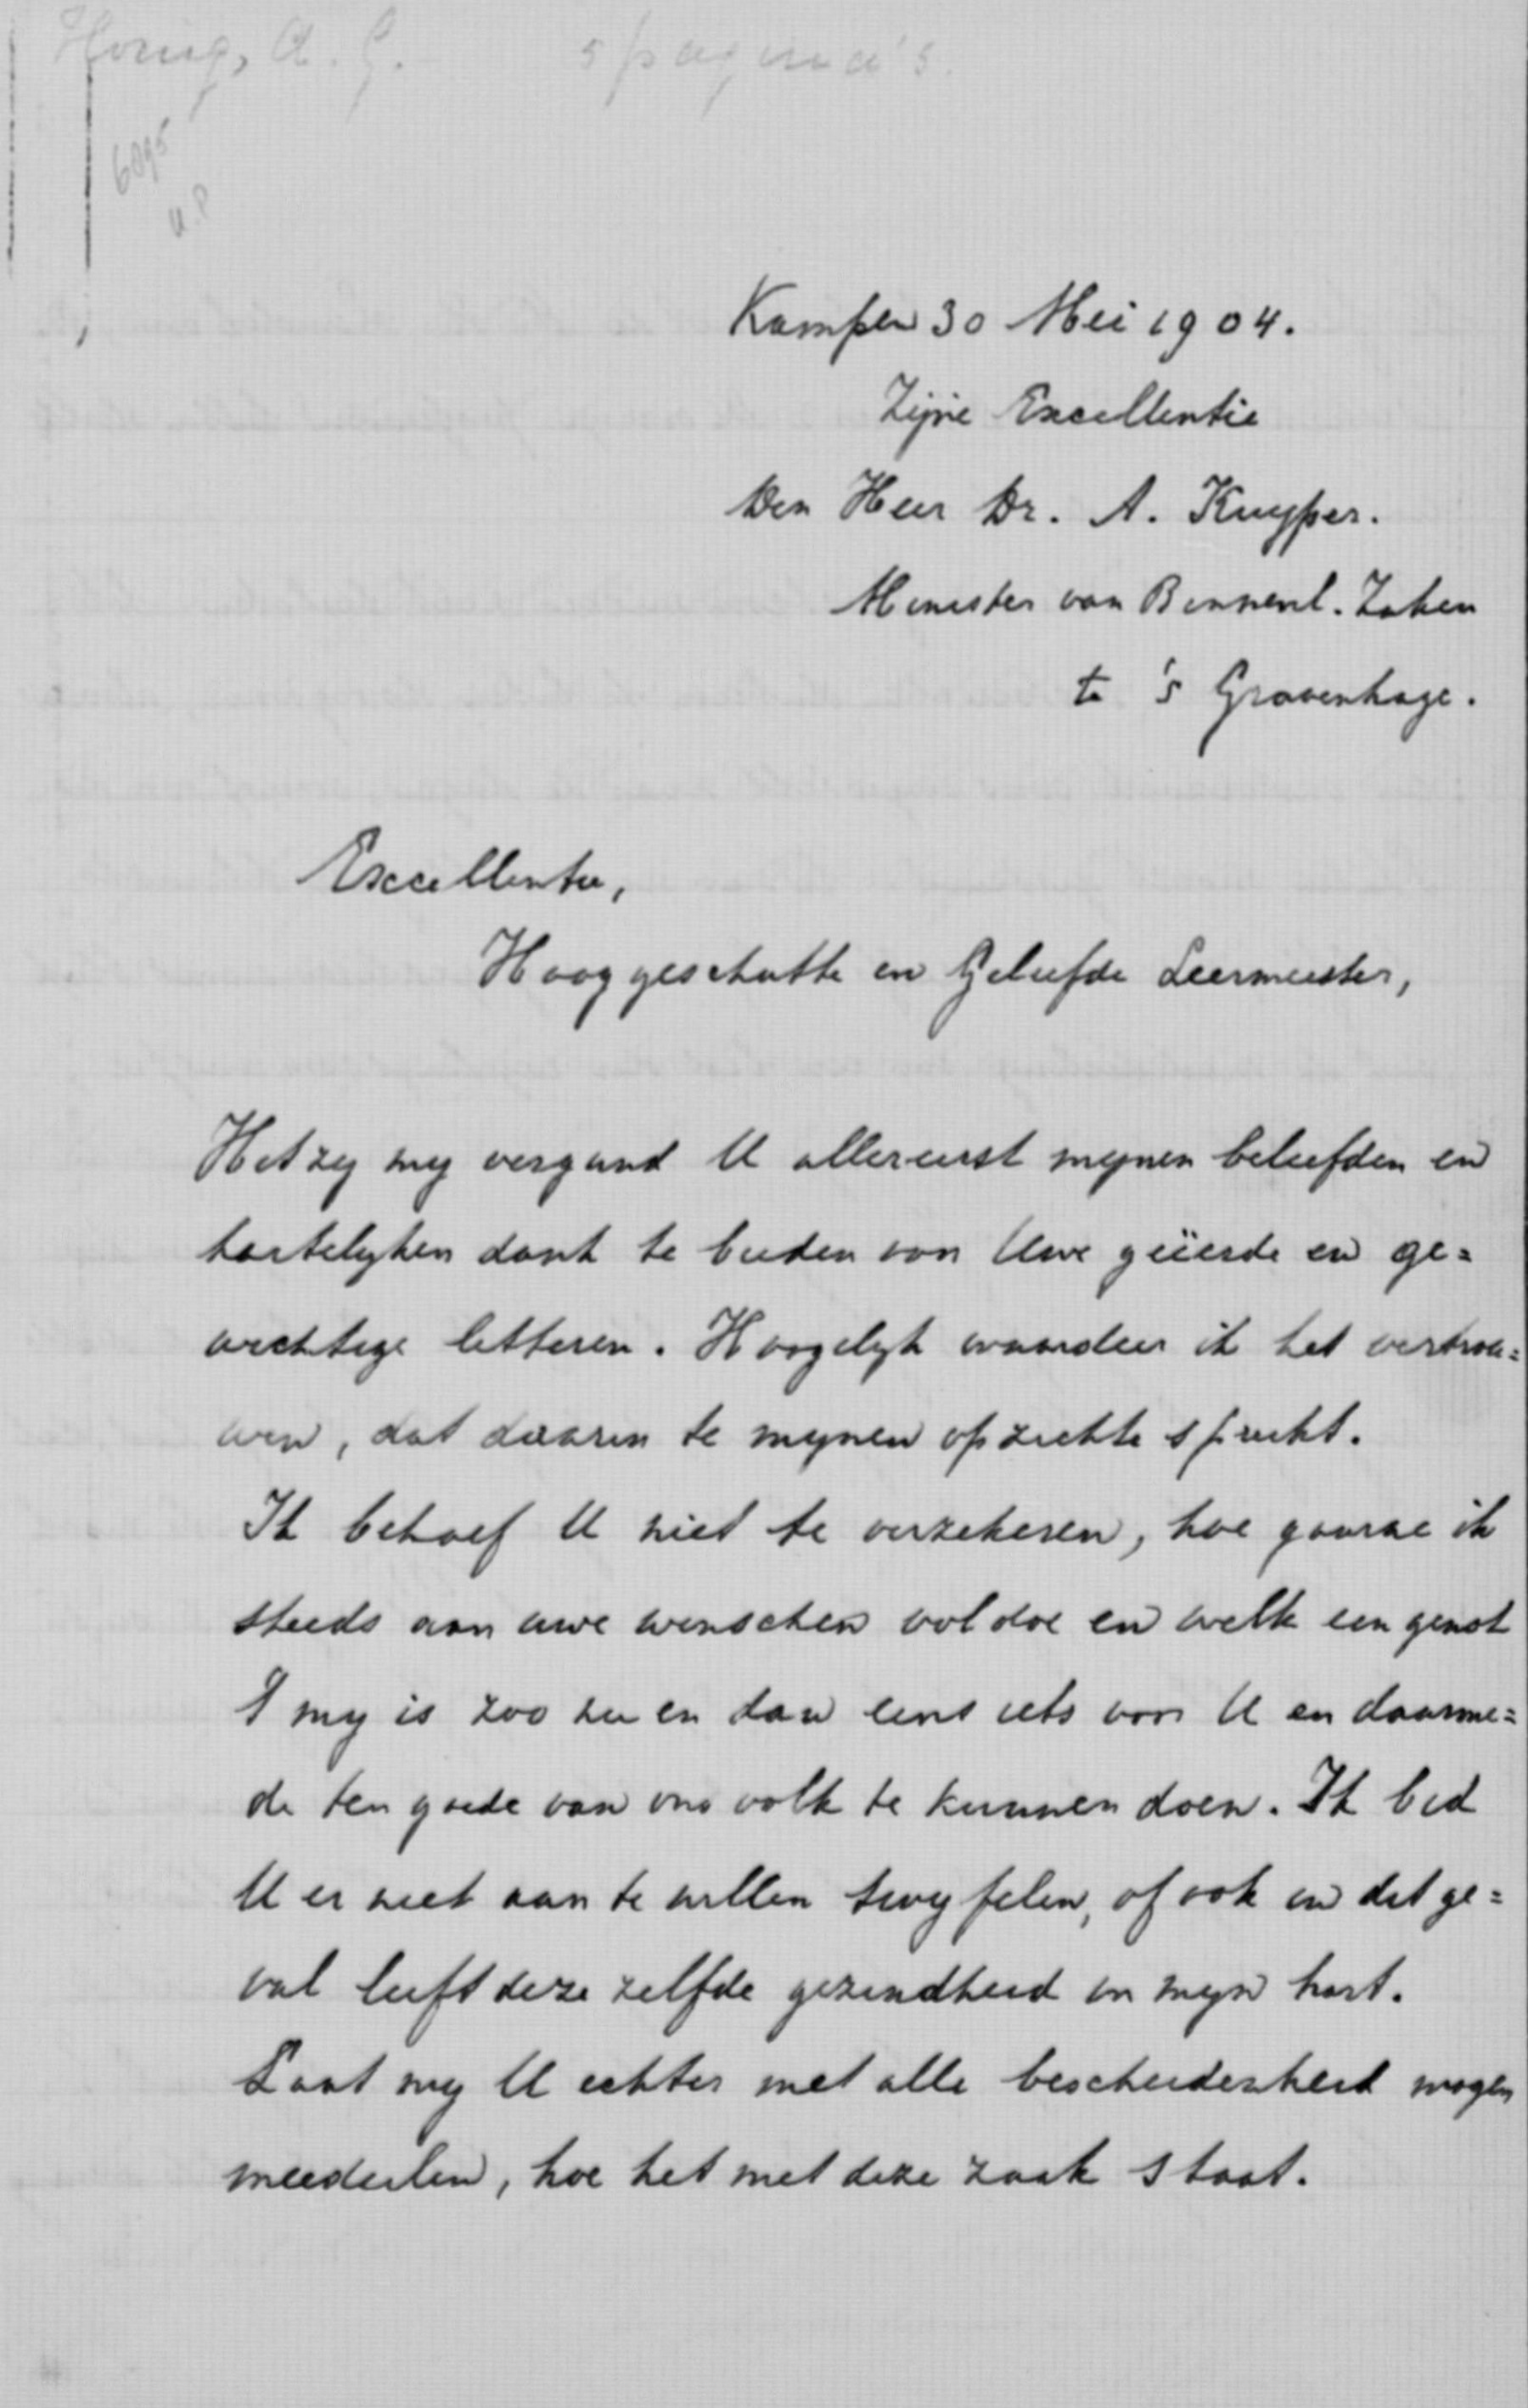 Honig, A. G. 5 pagina's.
6895
Kampen 30 Mei 1904.
Zijne Excellentie
Den Heer Dr. A. Kuyper.
Minister van Binnenl. Zaken
te 's Gravenhage.
Excellentie,
Hooggeschatte en Geliefde Leermeester,
Het zij mij vergund U allereerst mijnen beleefden en
hartelijken dank te bieden voor Uwe geëerde en ge=
wichtige letteren. Hoogelijk waardeer ik het vertrou=
wen, dat daarin te mijnen opzichte spreekt.
Ik behoef U niet te verzekeren, hoe gaarne ik
steeds aan uwe wenschen voldoe en welk een genot
't mij is zoo nu en dan eens iets voor U en daarme=
de ten goede van ons volk te kunnen doen. Ik bid
U er niet aan te willen twijfelen, of ook in dit ge=
val leeft deze zelfde gezindheid in mijn hart.
Laat mij U echter met alle bescheidenheid mogen
meedeelen, hoe het met deze zaak staat.